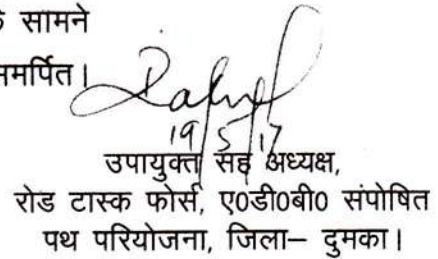 सामने
समर्पित।
19/5/17
उपायुक्त सह अध्यक्ष,
रोड टास्क फोर्स, ए0डी0बी0 संपोषित
पथ परियोजना, जिला– दुमका।